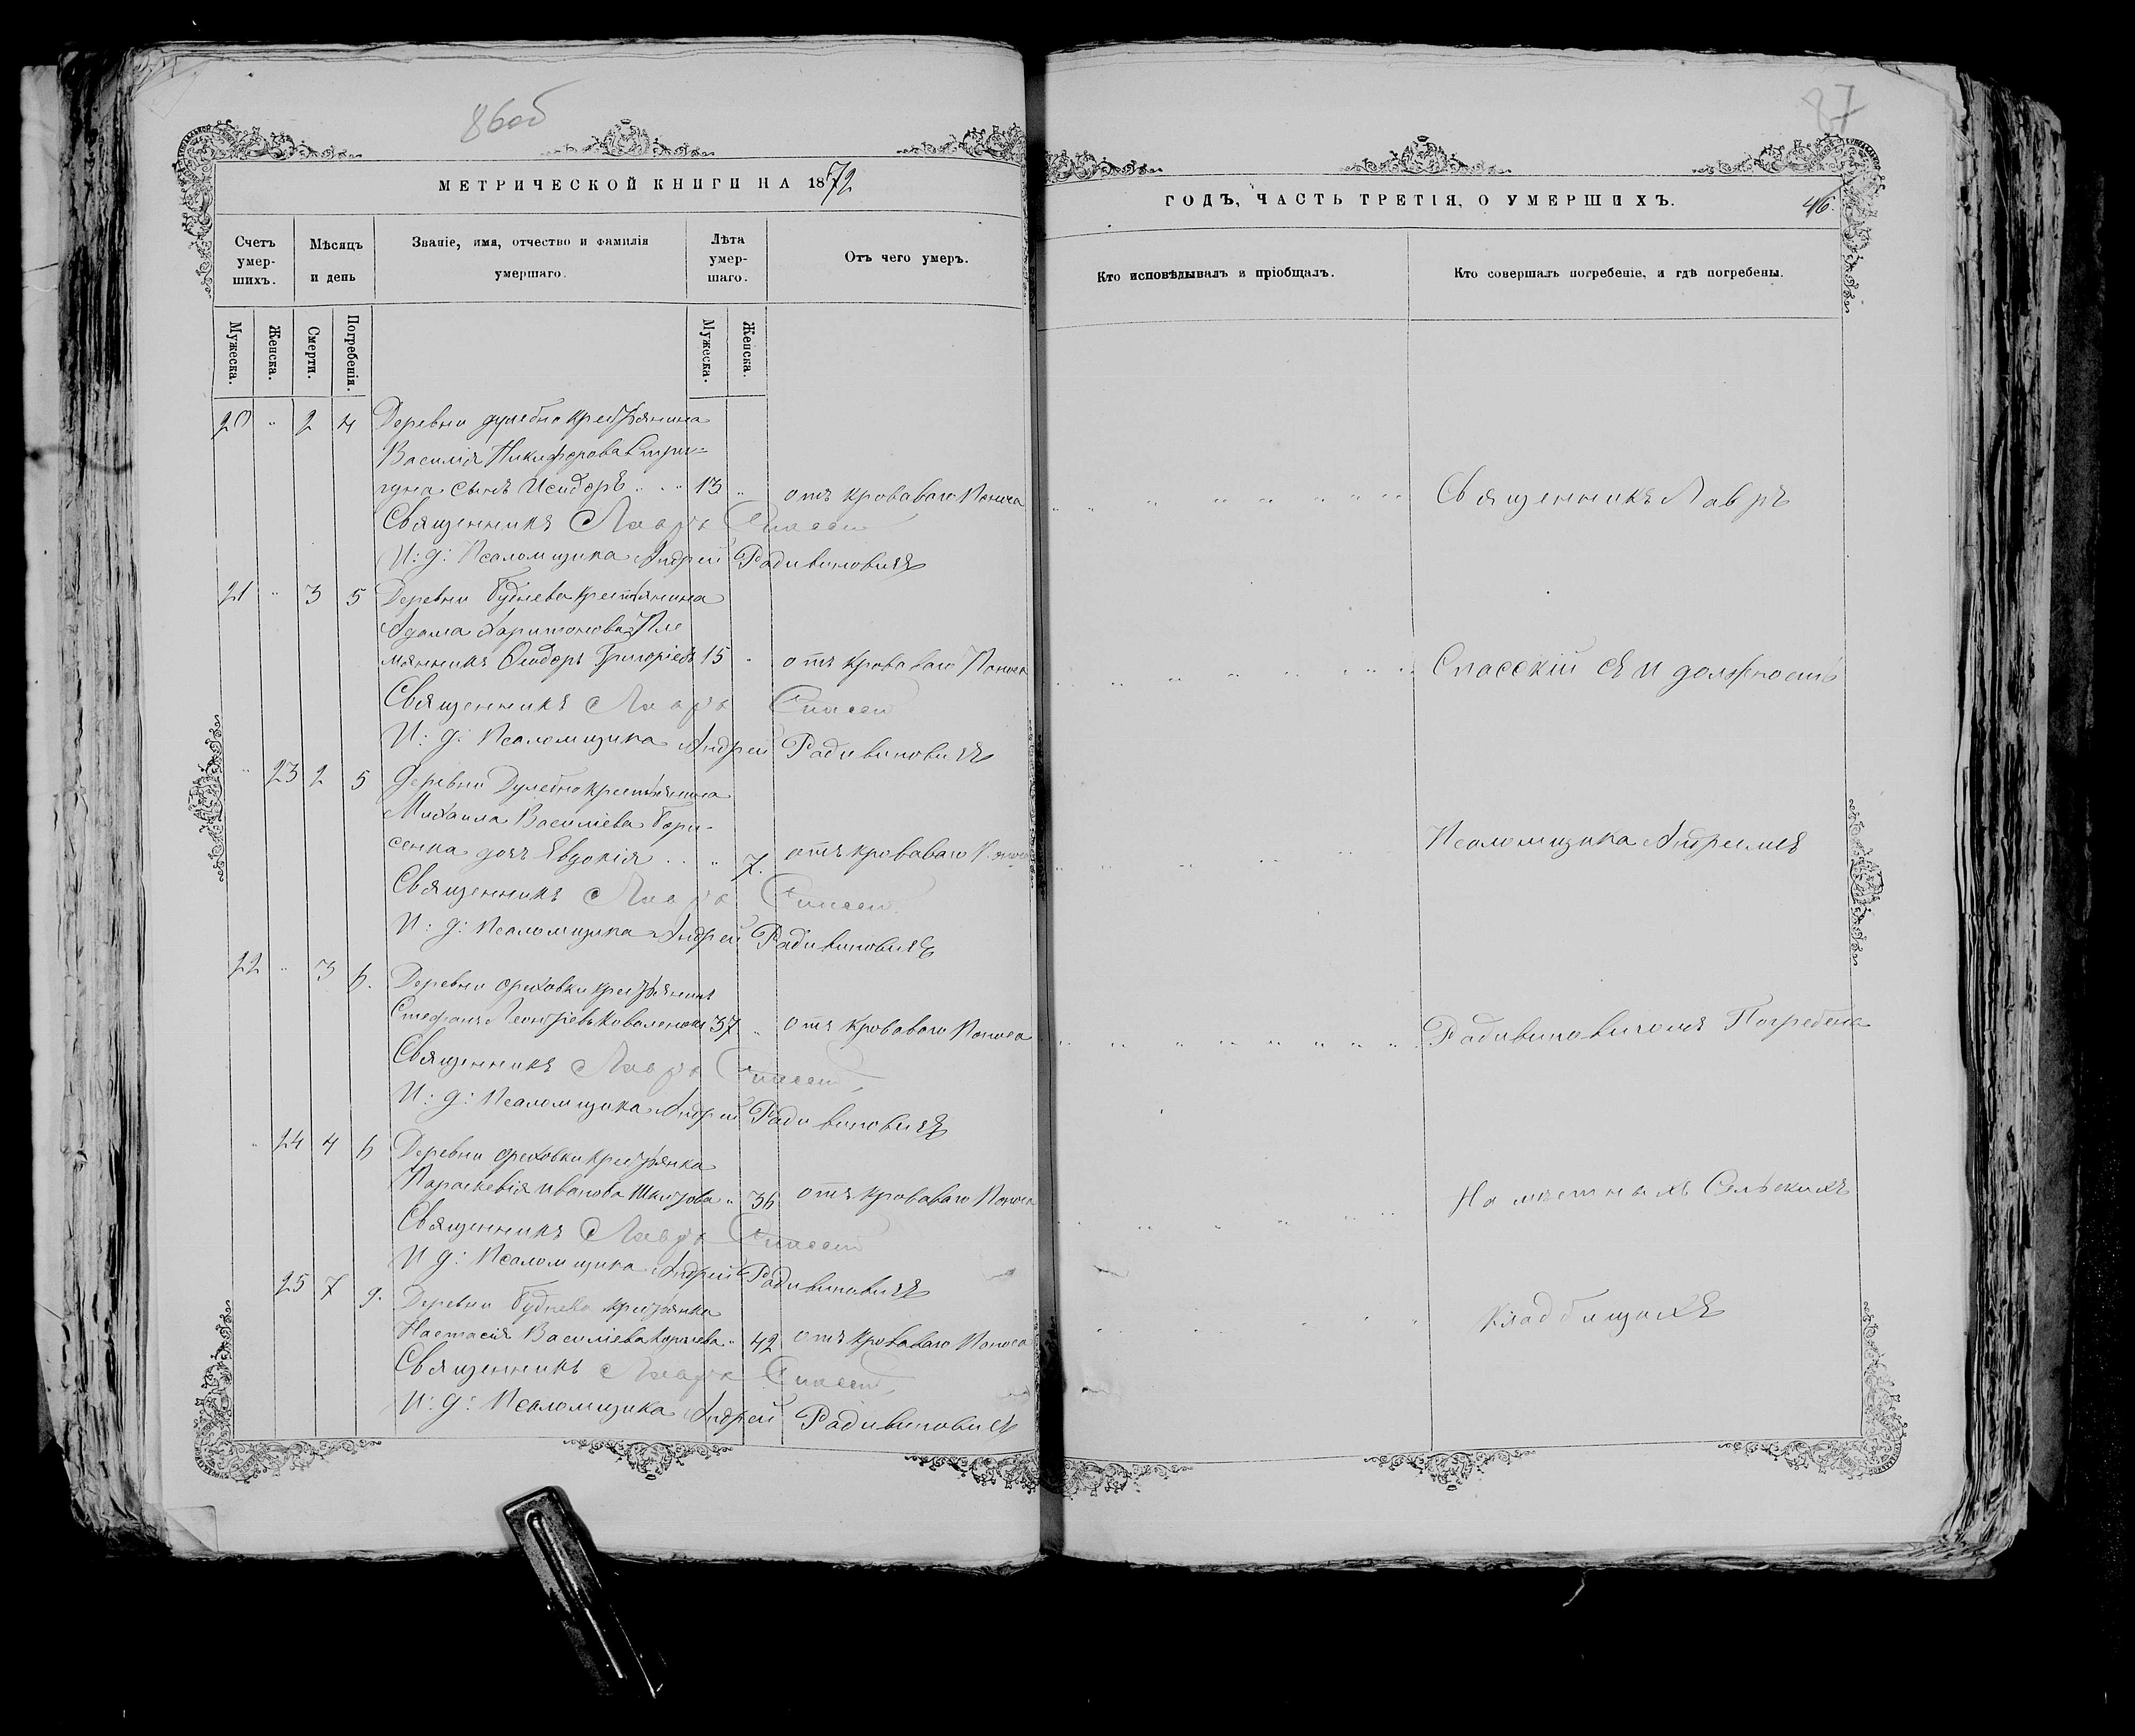 86об
МЕТРИЧЕСКОЙ КНИГИ НА 1872
Счетъ умер-шихъ.
Мѣсяцъ и день
Званіе, имя, отчество и фамилія умершаго.
Лѣта умер-шаго.
Отъ чего умеръ.
Мужеска.
Женска.
Смерти.
Погребенія.
Мужеска.
Женска.
20 " 2 4 Деревни Дулебно крестьянина
Василія Никифорова
сынъ Исидоръ 13 " отъ кроваваго поноса
Священникъ Лавръ
И: д: Псаломщика Андрей Радивиновичъ
21 " 3 5 Деревни Буднева крестьянина
Адама Харитонова Пле
мянникъ Ѳеодоръ Григоріевъ 15 " отъ кроваваго поноса
Священникъ Лавръ
И: д: Псаломщика Андрей Радивиновичъ
" 23 2 5 Деревни Дулебно крестьянина
Михаила Василіева Бори-
сенка дочь Евдокія " 7. отъ кроваваго поноса
Священникъ Лавръ
И: д: Псаломщика Андрей Радивиновичъ
22 " 3 6. Деревни Ореховки крестьянинъ
Стефанъ Леонтіевъ Коваленокъ 37 " отъ кроваваго поноса
Священникъ Лавръ
И: д: Псаломщика Андрей Радивиновичъ
" 24 4 6 Деревни Ореховки крестьянка
Параскевія Иванова " 36 отъ кроваваго поноса
Священникъ Лавръ
И д: Псаломщика Андрей Радивиновичъ
25 7 9. Деревни Буднева крестьянка
Настасія Василіева " 42 отъ кроваваго поноса
Священникъ Лавръ
И: д: Псаломщика Андрей Радивиновичъ
87
ГОДЪ, ЧАСТЬ ТРЕТІЯ, О УМЕРШИХЪ.
46.
Кто исповѣдывалъ и пріобщалъ.
Кто совершалъ погребеніе, и гдѣ погребены.
Священникъ Лавръ
Спасскій съ И должность
Псаломщика Андреемъ
Радивиновичемъ Погребены
На мѣстныхъ Сельскихъ
кладбищахъ